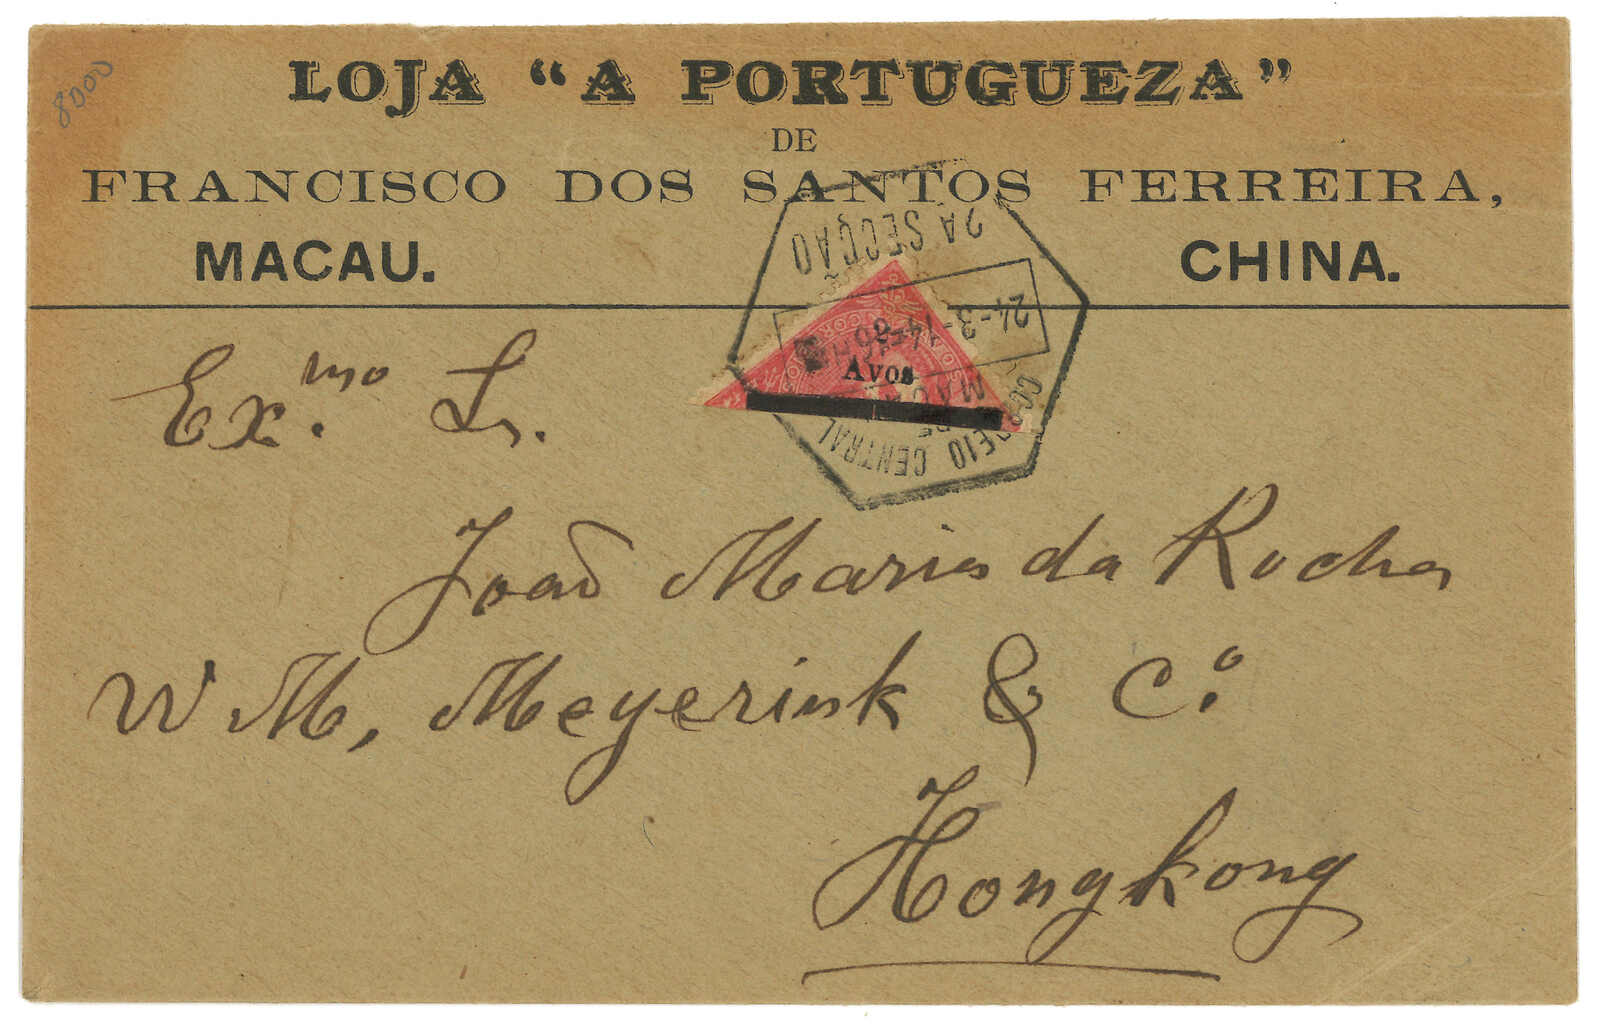 8000
LOJA “A PORTUGUEZA”
DE
FRANCISCO DOS SANTOS FERREIRA,
MACAU. CHINA.
2A SECÇÃO
24-3-14
Avos
CORREIO CENTRAL
Ex.mo Sr.
João Maria da Rocha
W M, Meyerink & C.o
Hongkong